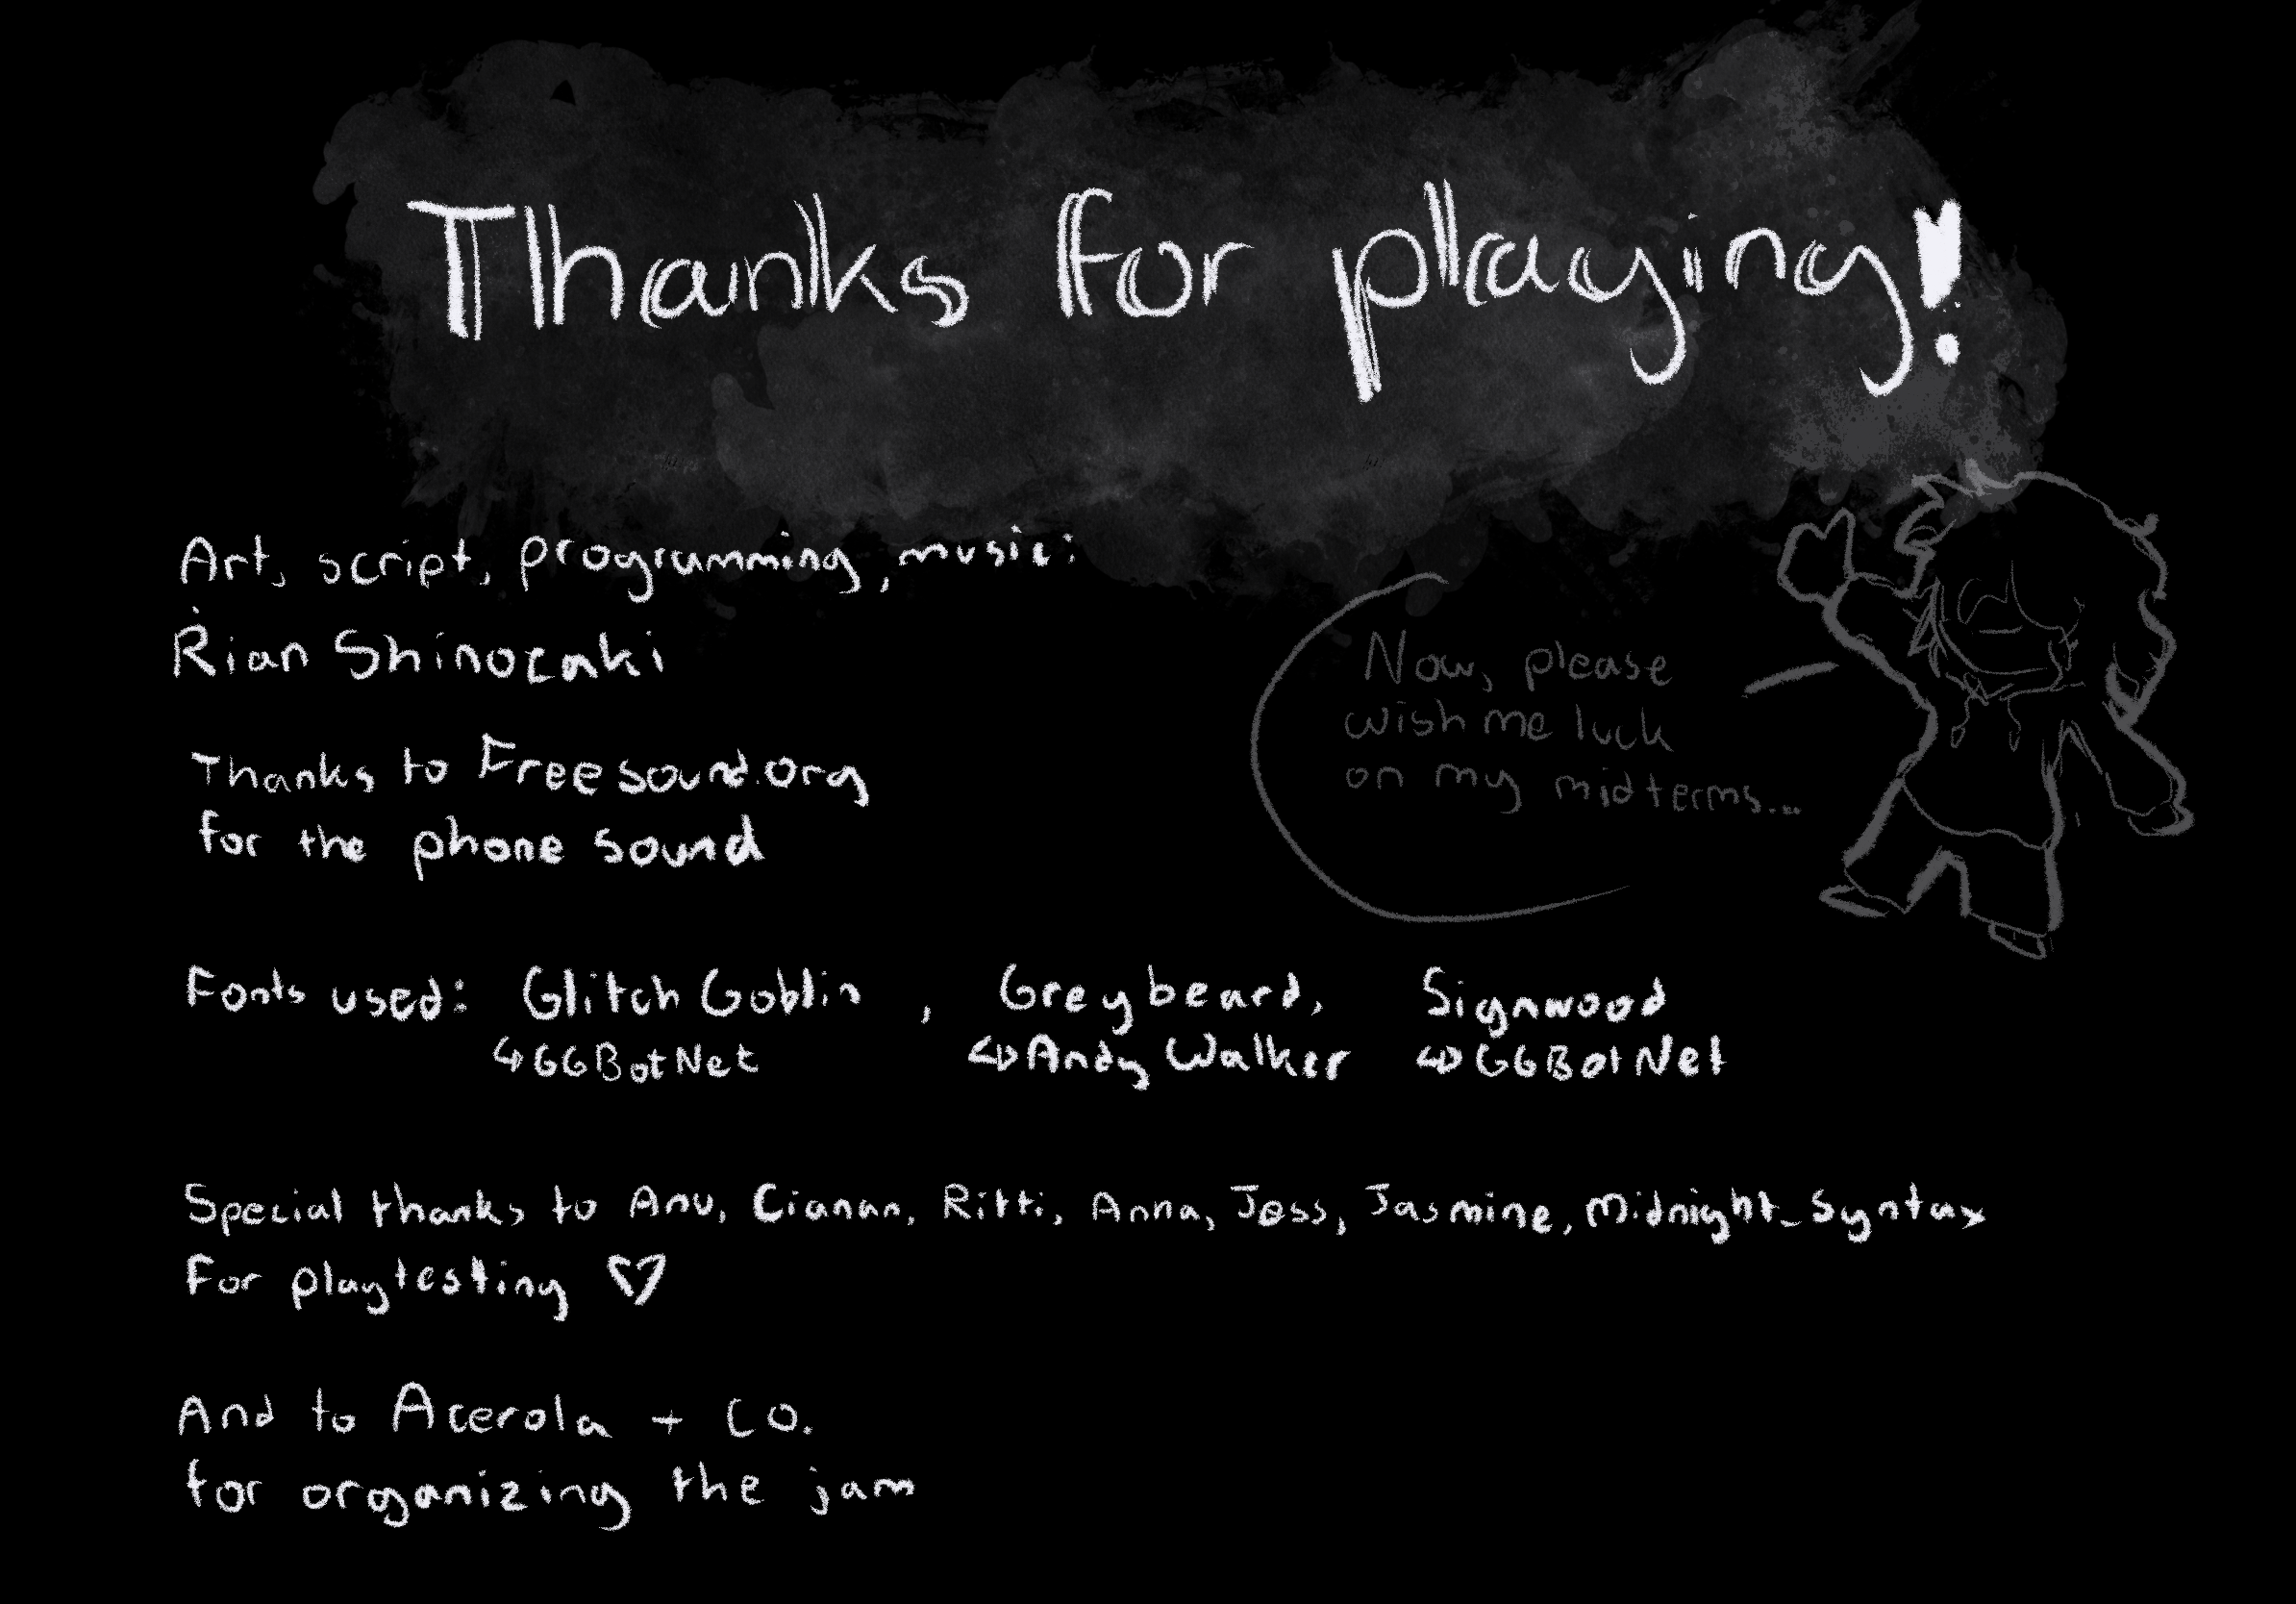 Thanks for playing!
Art, script, programming, music:
Rian Shinozaki
Thanks to Freesound.org
for the phone sound
Now, please
wish me luck
on my midterms...
Fonts used: Glitch Goblin, Greybeard, Signwood
↳GGBotNet ↳Andy Walker ↳GGBotNet
Special thanks to Anu, Cianan, Ritti, Anna, Jess, Jasmine, Midnight_Syntax
For playtesting ♡
And to Acerola + CO.
for organizing the jam